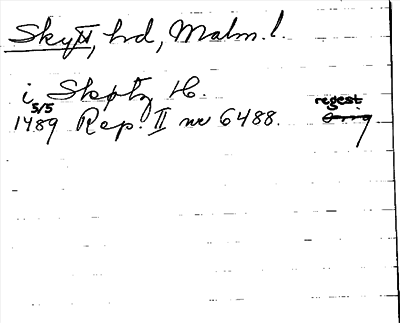 Skytt, hd, Malm. l.
i Skøtz H.
regest
5/5
1489 Rep. II nr 6488. Orig